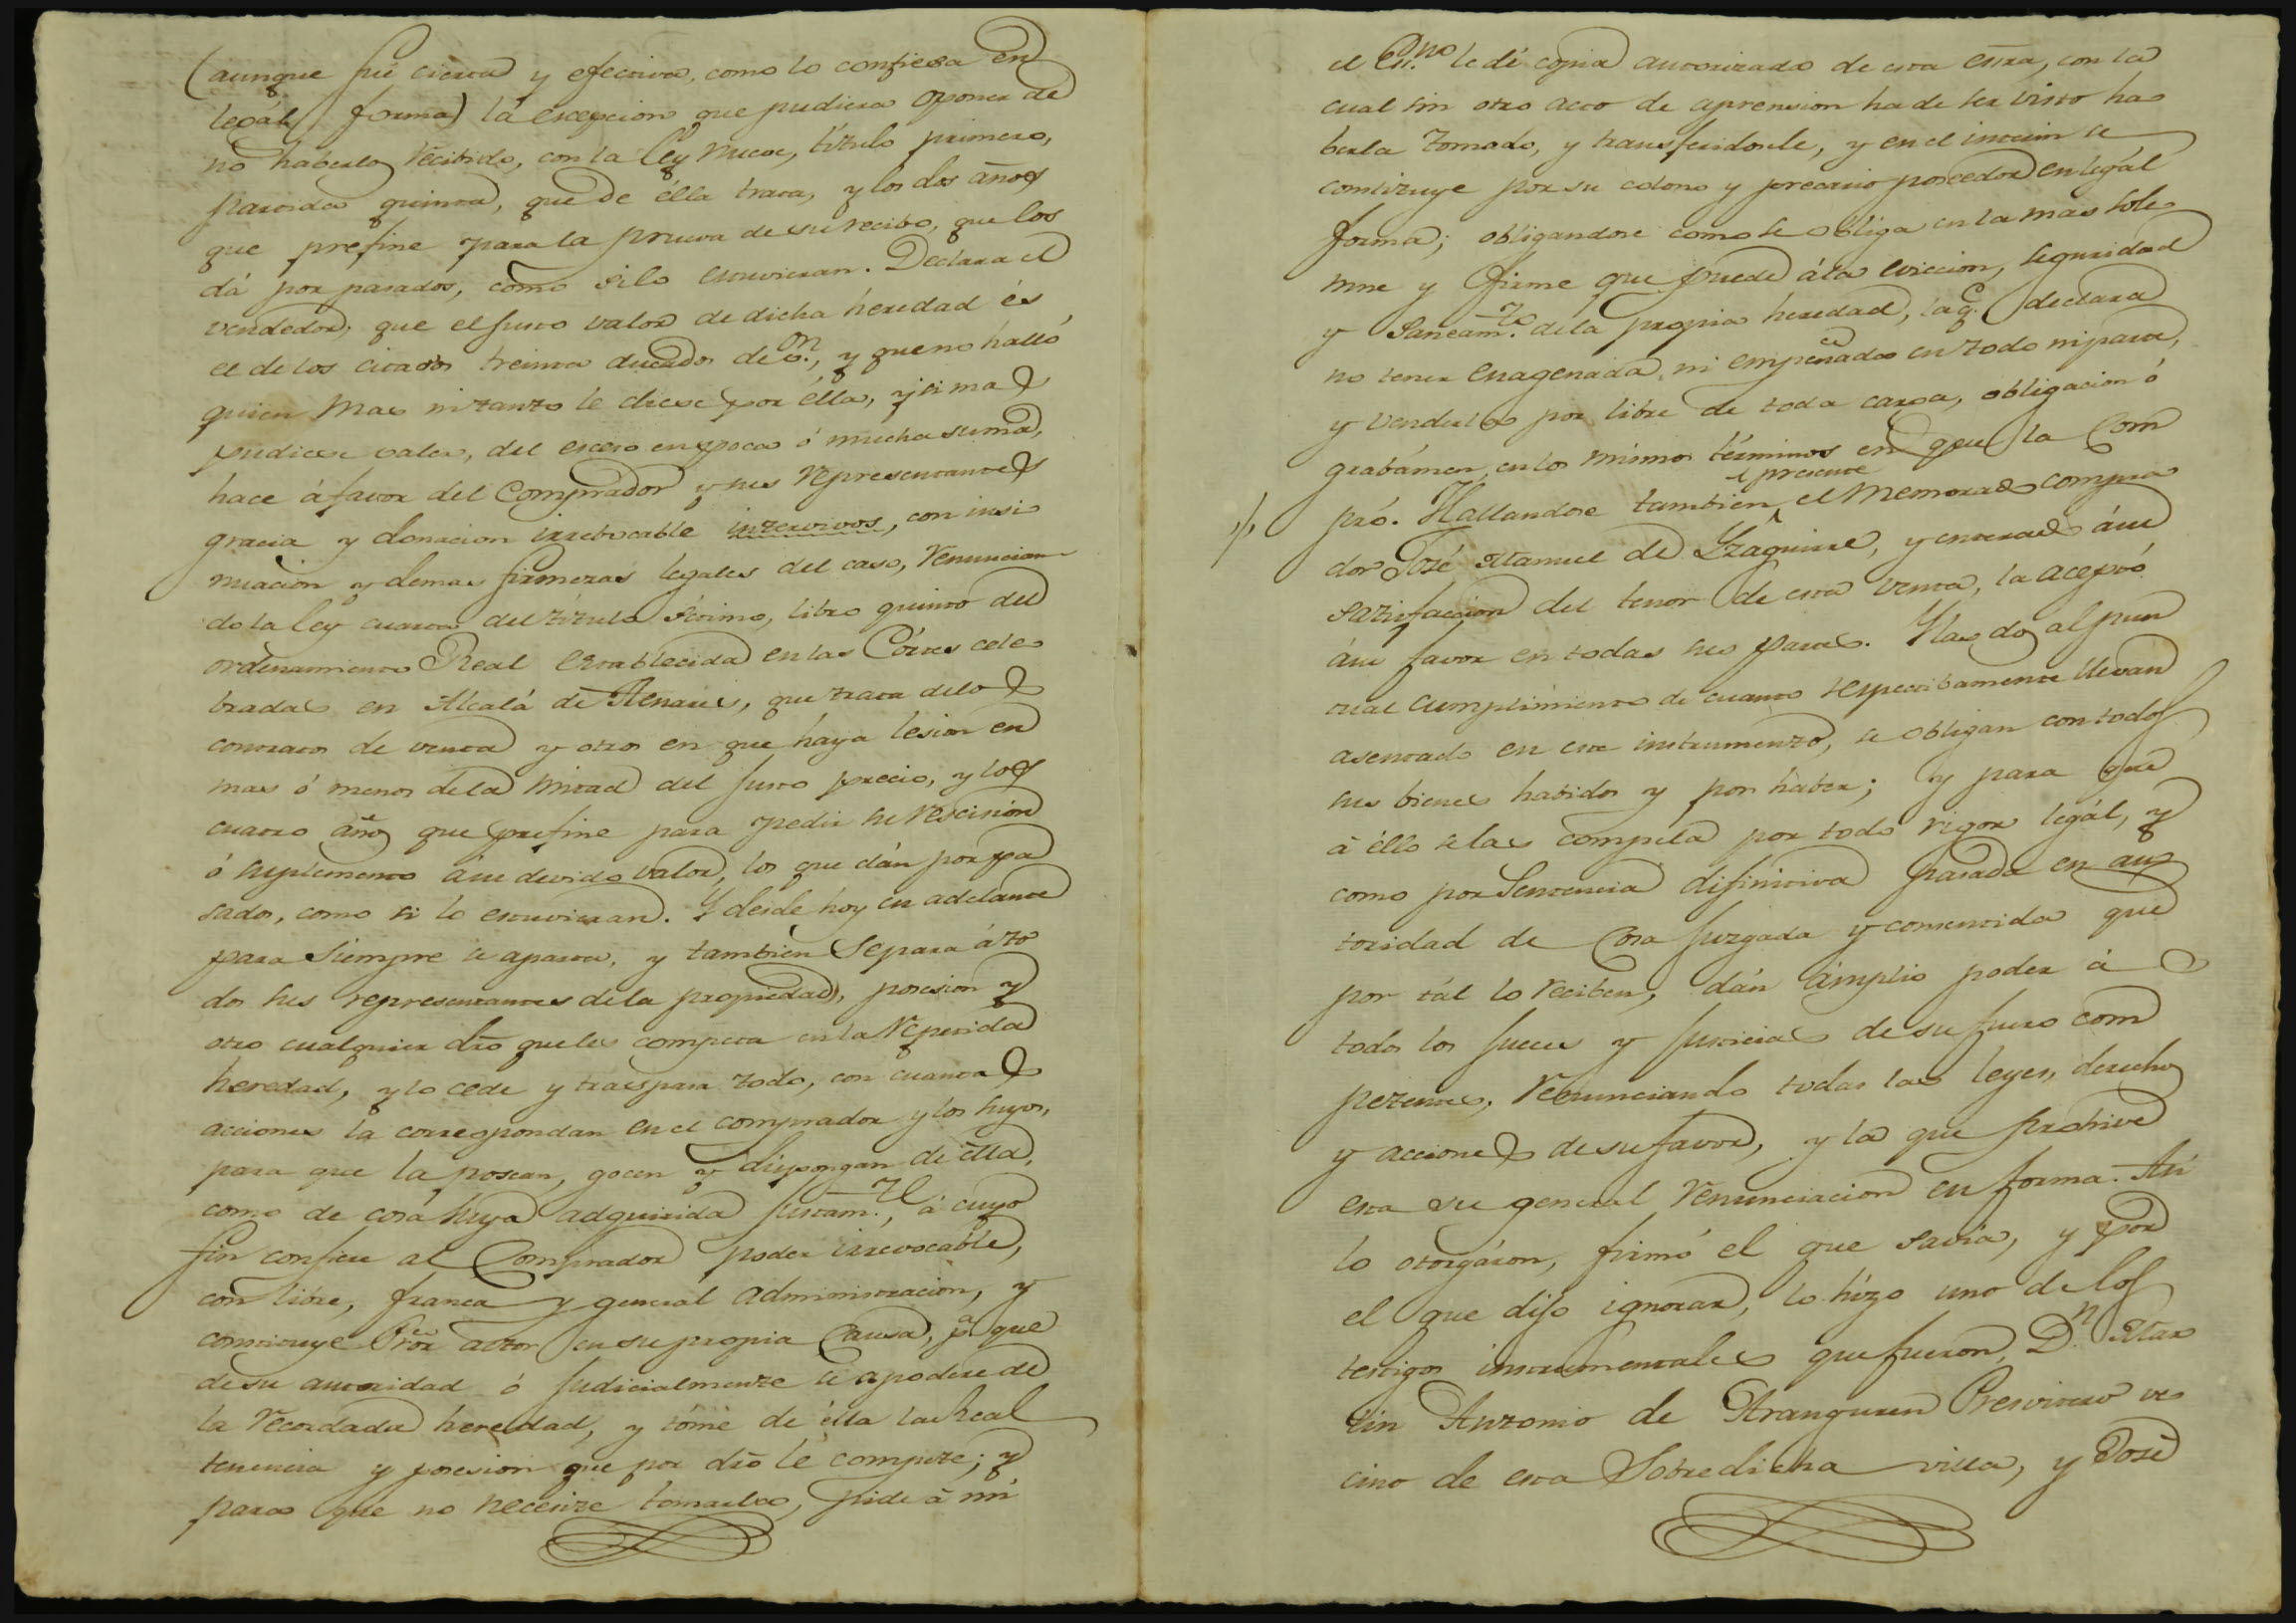 (aunque fué cierta y efectiva, como lo confiesa en
legál forma) la escepcion que pudiera oponer de
no haberlos recibido, con la Ley nueve, título primero,
partida quinta, que de élla trata, y los dos años
que prefine para la prueva de su recibo, que los
dá por pasados, como si lo estuvieran. Declara el
vendedor, que el justo valor de dicha heredad és
el de los citados treinta ducados de v.n, y que no halló
quien mas ni tanto le diese por élla, y si mas
pudiese valer, del esceso en poca ó mucha suma,
hace á favor del Comprador y sus representantes
gracia y donacion irrebocable intervivos, con insi
nuacion y demas firmezas legales del caso, renuncian
do la Ley cuarta del título sétimo, libro quinto del
ordenamiento Real establecida en las Córtes cele
bradas en Alcalá de Henares, que trata de los
contratos de venta y otros en que haya lesion en
mas ó menos de la mitad del justo precio, y los
cuatro años que prefine para pedir su rescision
ó suplemento á su devido valor, los que dán por pa
sados, como si lo estuvieran. Y desde hoy en adelante
para siempre se aparta, y tambien separa á to
dos sus representantes de la propiedad, posesion y
otro cualquier dró que les competa en la repetida
heredad, y lo cede y traspasa todo, con cuantas
acciones la correspondan en el comprador y los suyos,
para que la posean, gocen y dispongan de élla,
como de cosa suya adquirida justam.te, á cuyo
fin confiere al Comprador poder irrevocable,
con libre, franca y general administracion, y
constituye Pror. actor en su propia Causa, p.a que
de su autoridad ó judicialmente se apodere de
la recordada heredad, y tome de élla la Real
tenencia y posesion que por dró le compete; y
para que no necesite tomarla, pide á mi
el Es.no le dé copia autorizada de esta esrra, con la
cual sin otro acto de aprension ha de ser visto ha
berla tomado, y transferidosele, y en el interin se
constituye por su colono y precario poseedor en legál
forma; obligandose como se obliga en la mas sole
mne y firme que puede á la eviccion, seguridad
y Saneam.to de la propia heredad, la q.e declara
no tener enagenada, ni empeñada en todo ni parte,
y vendersela por libre de toda carga, obligacion ó
grabámen, en los mismos términos en que la Com
pró. Hallandose tambien presente el memorado compra
dor José Manuel de Yzaguirre, y enterado á su
satisfaccion del tenor de esta venta, la aceptó
á su favor en todas sus partes. Y las dos al pun
tual cumplimiento de cuanto respectibamente llevan
asentado en este instrumento, se obligan con todos
sus bienes habidos y por haber; y para que
á éllo se las compela por todo rigor legál, y
como por Sentencia difinitiva pasada en au
toridad de Cosa juzgada y consentida que
por tál lo reciben, dán ámplio poder á
todos los Jueces y Justicias de su fuero com
petente, renunciando todas las leyes, derechos
y acciones de su favor, y la que prohive
esta su general renunciacion en forma. Asi
lo otorgáron, firmó el que savia, y por
el que dijo ignorar, lo hizo uno de los
testigos instrumentales que fueron, D.n Mar
tin Antonio de Aranguren Presvitero ve
cino de esta Sobredicha villa, y José